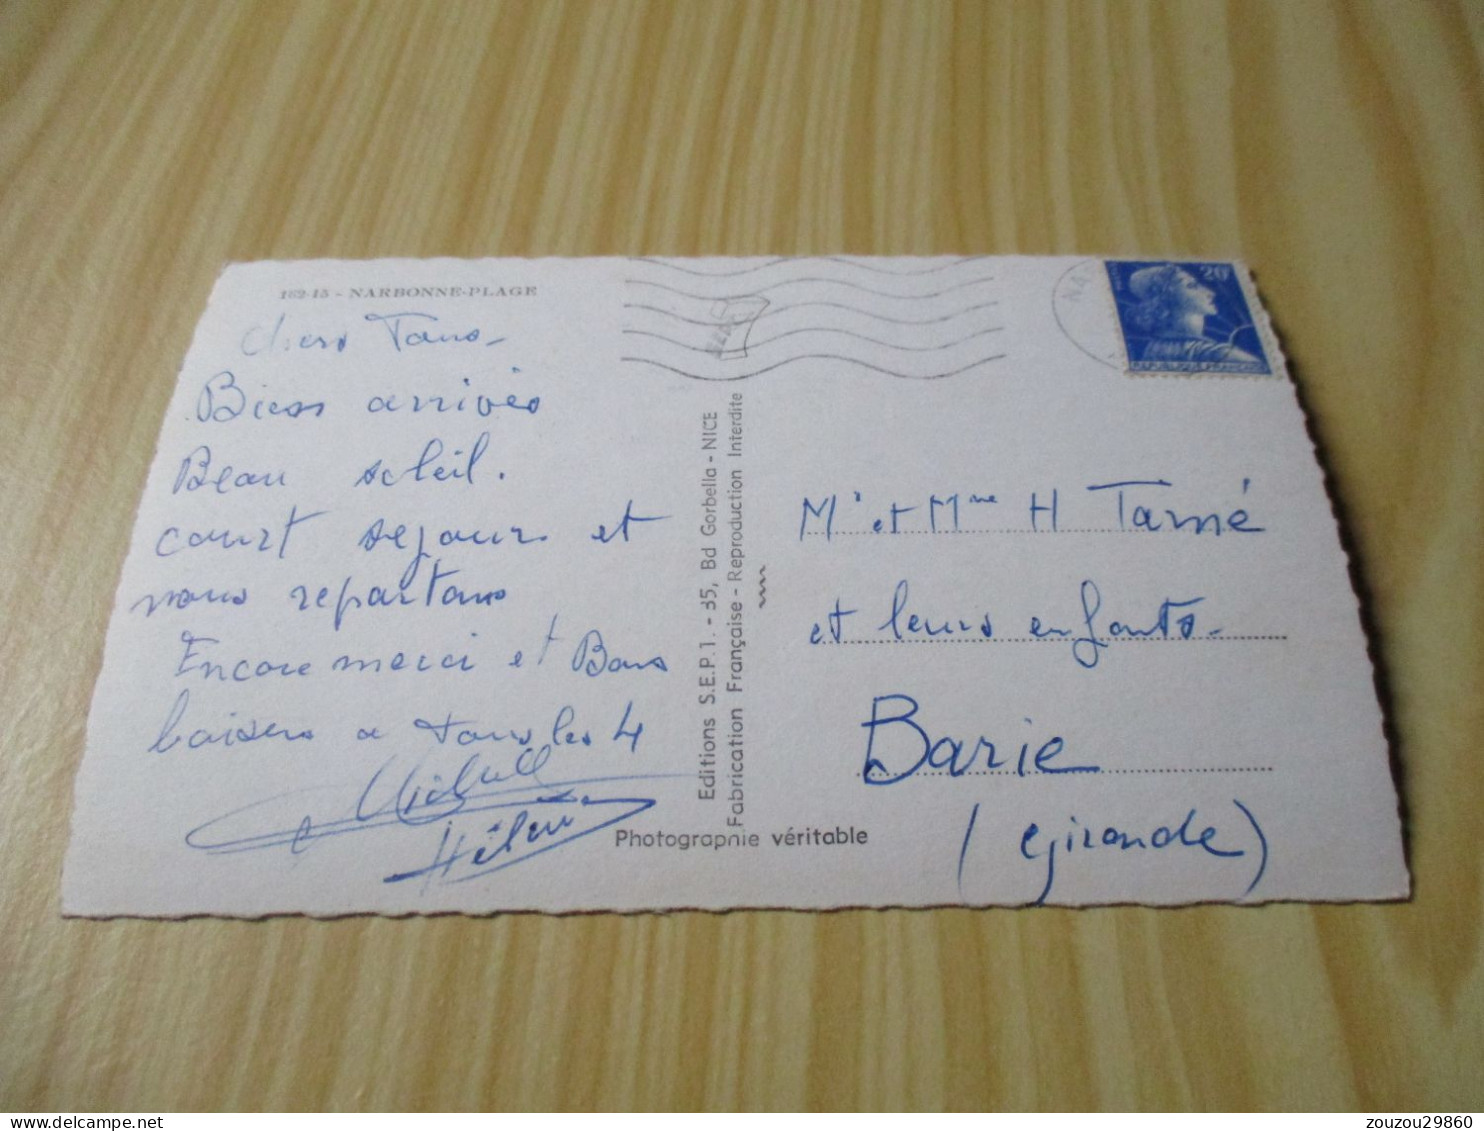 162-15 - NARBONNE-PLAGE
Chers Tous -
Bien arrivés
Beau soleil.
court sejour et
nous repartons
Encore merci et Bons
baisers a tous les 4
Hélène
Editions S.E.P.I. - 35, Bd Gorbella - NICE
Fabrication Française - Reproduction Interdite
Photographie véritable
20F
REPUBLIQUE FRANÇAISE
Mr et Mme H Tarné
et leurs enfants -
Barie
(Gironde)
zouzou29860